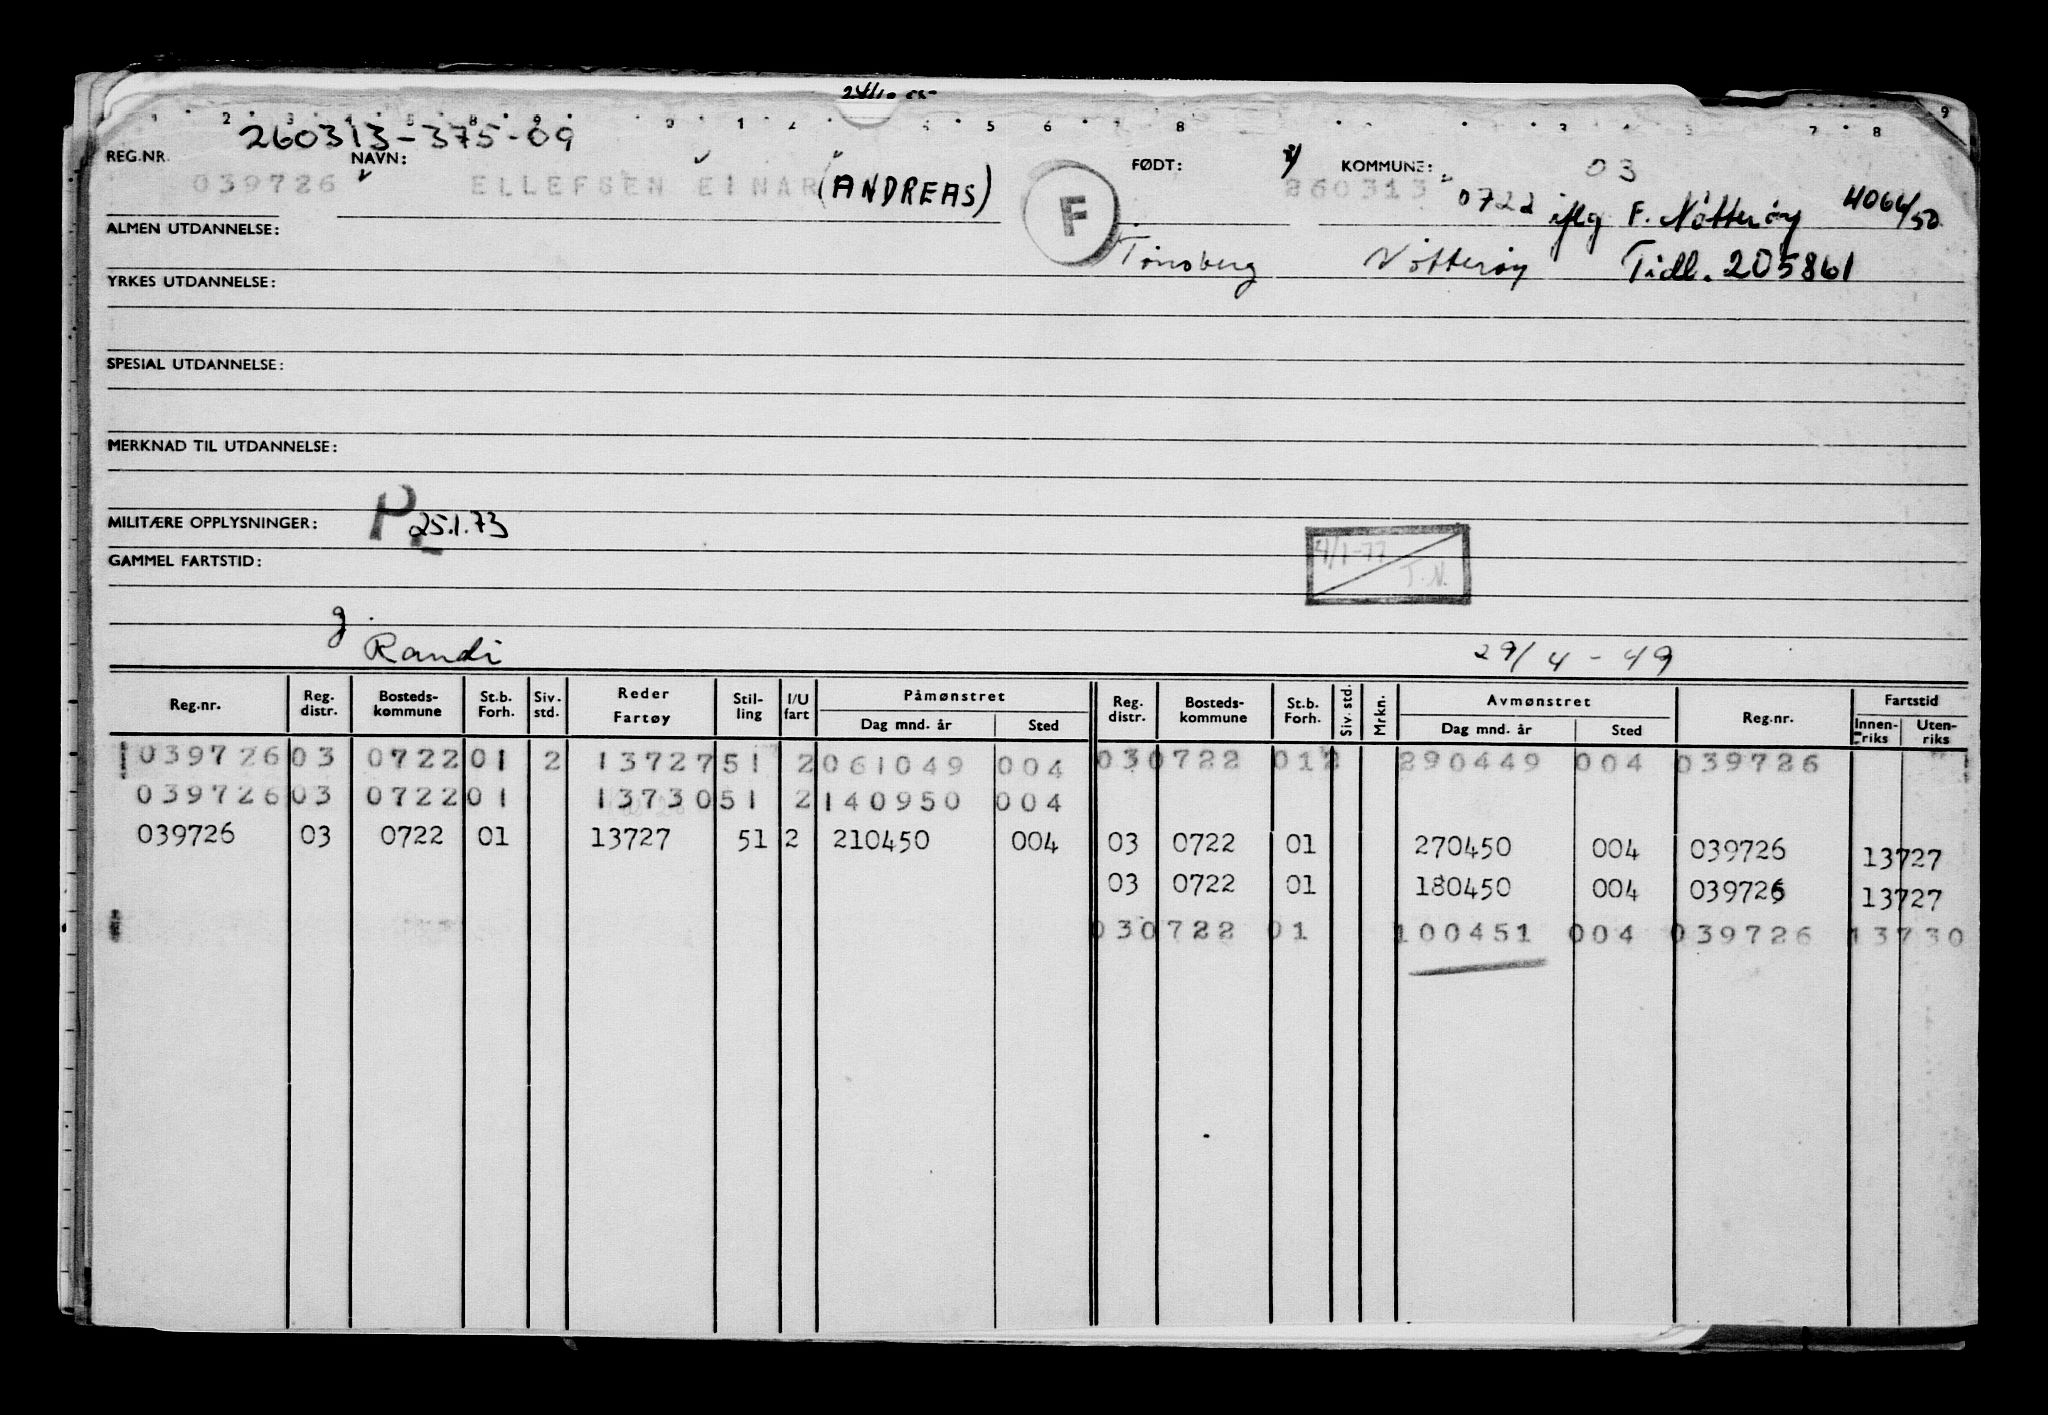 24/10
260313-375-09
REG.NR. NAVN: FØDT: KOMMUNE: 03
039726 ELLEFSEN EINAR (ANDREAS) F 260313 0722 iflg F. Nøtterøy 4066/50
ALMEN UTDANNELSE: Tønsberg Nøtterøy Tidl. 205861
YRKES UTDANNELSE:
SPESIAL UTDANNELSE:
MERKNAD TIL UTDANNELSE:
MILITÆRE OPPLYSNINGER: P 25.1.73
GAMMEL FARTSTID: 4/1-77 T.N.
g.
Randi 29/4-49
Reg.nr. Reg. distr. Bosteds-kommune St.b. Forh. Siv. std. Reder Fartøy Stil-ling I/U fart Påmønstret Dag mnd. år Sted Reg. distr. Bosteds-kommune St.b. Forh. Siv. std. Mrkn. Avmønstret Dag mnd. år Sted Reg.nr. Fartstid Innen-riks Uten-riks
039726 03 0722 01 2 13727 51 2 061049 004 03 0722 01 2 290449 004 039726
039726 03 0722 01 13730 51 2 140950 004
039726 03 0722 01 13727 51 2 210450 004 03 0722 01 270450 004 039726 13727
03 0722 01 180450 004 039726 13727
03 0722 01 100451 004 039726 13730